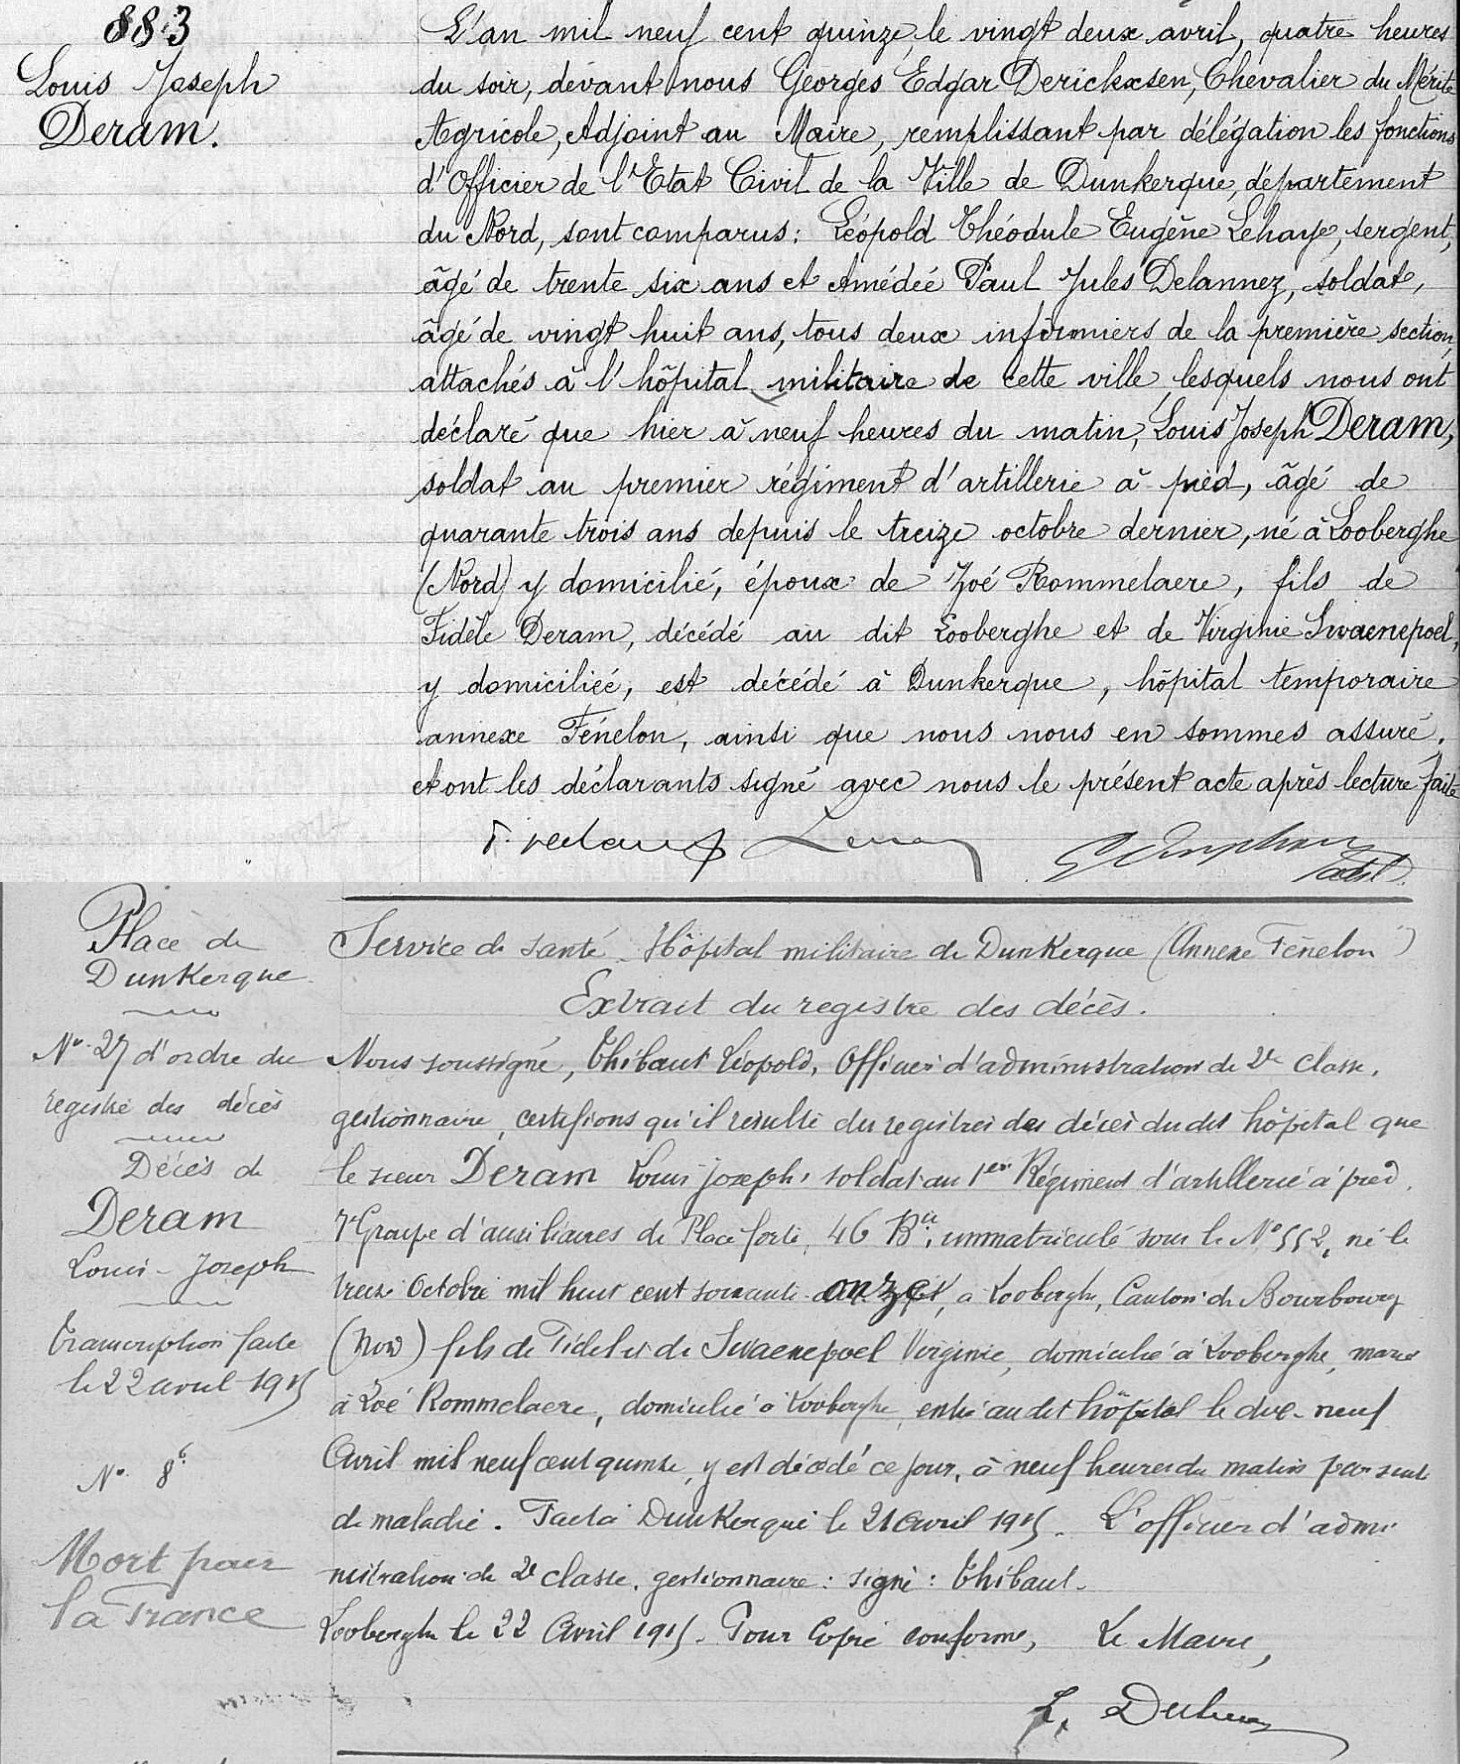 883
Louis Joseph
Deram.
L'an mil neuf cent quinze, le vingt deux avril, quatre heures
du soir, devant nous Georges Edgar Dericksen, Chevalier du Mérite
Agricole, Adjoint au Maire, remplissant par délégation les fonctions
d'Officier de l'Etat Civil de la Ville de Dunkerque, département
du Nord, sont comparus : Léopold Théodule Eugène Lehaye, sergent,
âgé de trente six ans et Amédée Paul Jules Delannez, soldat,
âgé de vingt huit ans, tous deux infirmiers de la première section,
attachés à l'hôpital militaire de cette ville, lesquels nous ont
déclaré que hier à neuf heures du matin, Louis Joseph Deram,
soldat au premier régiment d'artillerie à pied, âgé de
quarante trois ans depuis le treize octobre dernier, né à Looberghe
(Nord) y domicilié, époux de Zoé Rommelaere, fils de
Fidèle Deram, décédé au dit Looberghe et de Virginie Swaenepoel,
y domiciliée, est décédé à Dunkerque, hôpital temporaire
annexe Fénelon, ainsi que nous nous en sommes assuré.
et ont les déclarants signé avec nous le présent acte après lecture faite
Place de
Dunkerque
N° 27 d'ordre du
registre des décès
Décès de
Deram
Louis-Joseph
Transcription faite
le 22 avril 1915
N° 8
Mort pour
la France
Service de santé. Hôpital militaire de Dunkerque (Annexe Fénelon)
Extrait du registre des décès.
Nous soussigné, Thibaut Léopold, Officier d'administration de 2e classe,
gestionnaire, certifions qu'il résulte du registres des décès dudit hôpital que
le sieur Deram Louis Joseph, soldat au 1er Régiment d'artillerie à pied,
7e Groupe d'auxiliaires de Place forte, 46 Bie, immatriculé sous le N° 552, né le
treize Octobre mil huit cent soixante onze, à Looberghe, Canton de Bourbourg
(Nord) fils de Fidel et de Swaenepoel Virginie, domicilié à Looberghe, marié
à Zoé Rommelaere, domicilié à Looberghe, entré au dit hôpital le dix-neuf
Avril mil neuf cent quinze, y est décédé ce jour, à neuf heures du matin par suite
de maladie. Fait à Dunkerque le 21 Avril 1915. L'officier d'admi
nistration de 2e classe, gestionnaire : signé : Thibaut.
Looberghe le 22 Avril 1915. Pour Copie conforme, Le Maire,